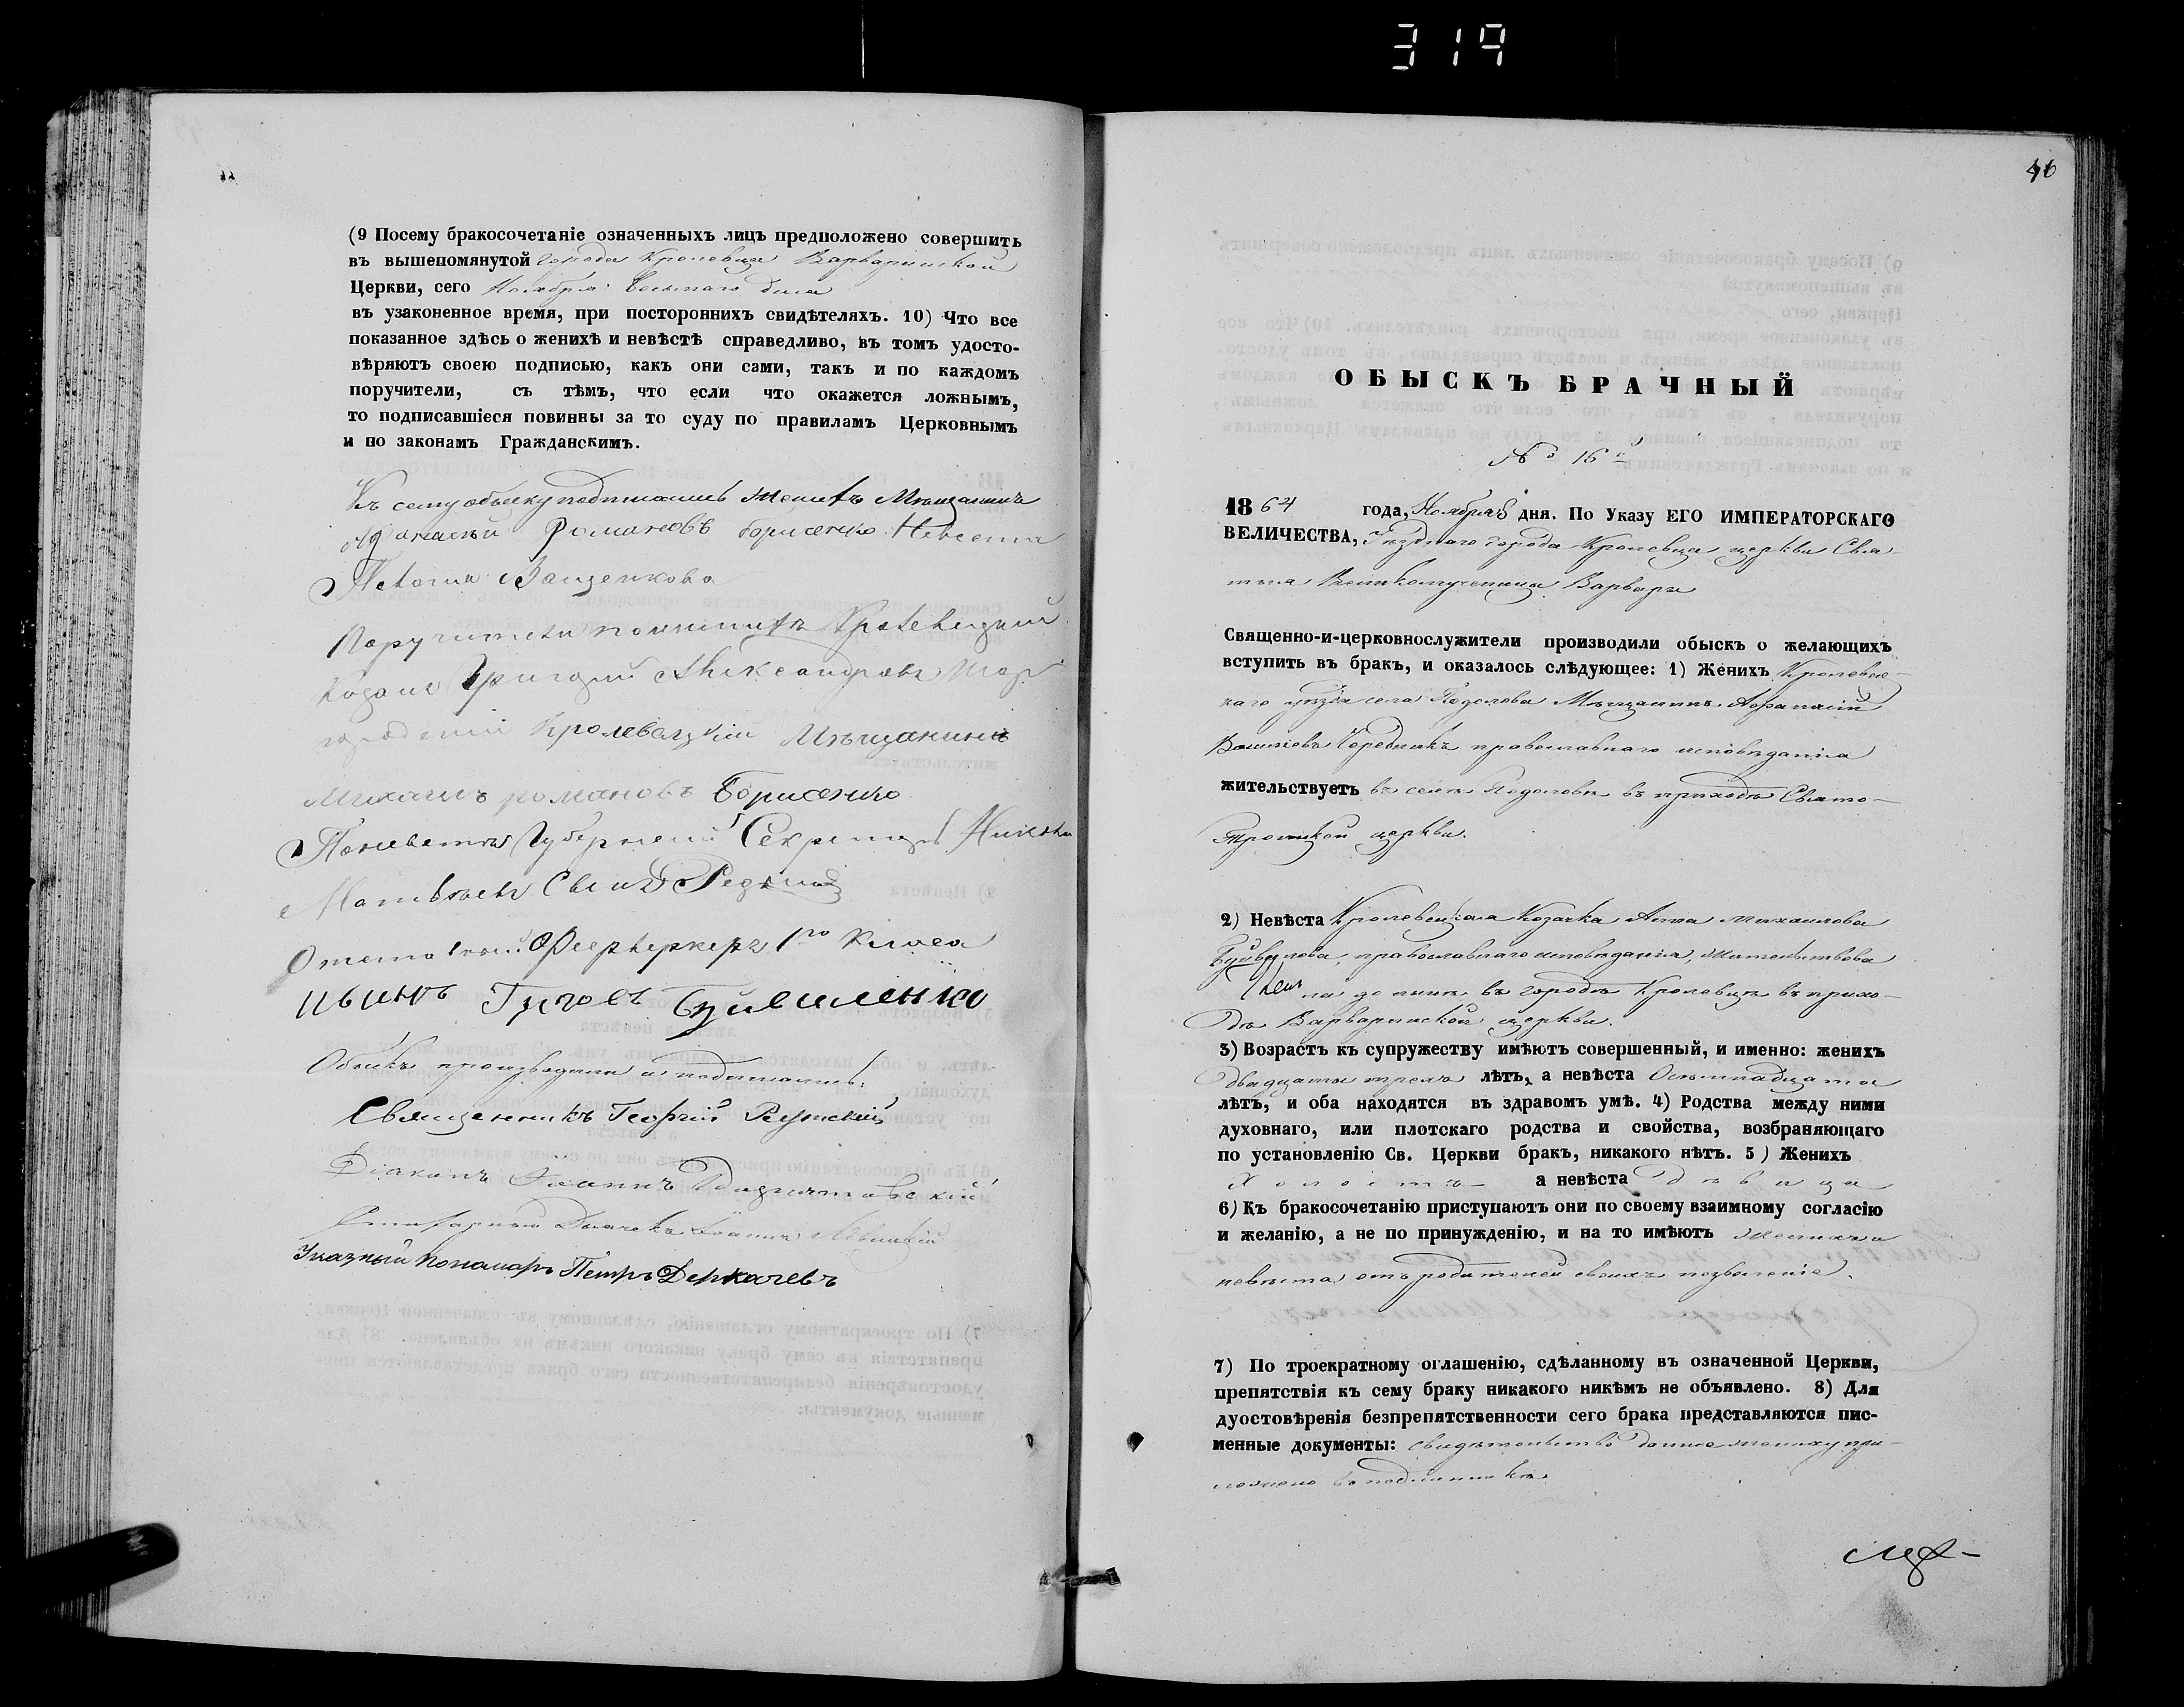 319
(9 Посему бракосочетаніе означенныхъ лицъ предположено совершить
въ вышепомянутой города Кролевца Варваринской
Церкви, сего Ноября дня
въ узаконенное время, при постороннихъ свидѣтеляхъ. 10) Что все
показанное здѣсь о женихѣ и невѣстѣ справедливо, въ томъ удосто-
вѣряютъ своею подписью, какъ они сами, такъ и по каждомъ
поручители, съ тѣмъ, что если что окажется ложнымъ,
то подписавшіеся повинны за то суду по правиламъ Церковнымъ
и по законамъ Гражданскимъ.
Къ сему обыску подписались женихъ Мѣщанинъ
Романовъ Борисенко Невеста
Ващенкова
Поручители
Козакъ Григорій Александровъ
Кролевецкій Мѣщанинъ
Михаилъ романовъ Борисенко
Губернскій Секретарь
Матвѣевъ
Отставной Фейерверкеръ 1го класа
Обыскъ производили и подписались:
Священникъ Георгій
Діаконъ Іоаннъ
Дьячокъ Іоаннъ Левицкій
Указный пономарь Петръ Деркачевъ
46
ОБЫСКЪ БРАЧНЫЙ
№ 16й
1864 года, Ноября 8 дня. По Указу ЕГО ИМПЕРАТОРСКАГО
ВЕЛИЧЕСТВА, Уѣзднаго города Кролевца церкви Свя-
тыя Великомученицы Варвары
Священно-и-церковнослужители производили обыскъ о желающихъ
вступить въ бракъ, и оказалось слѣдующее: 1) Женихъ Кролевец-
каго уѣзда села Подолова Мѣщанинъ Афанасій
Чередникъ православнаго исповѣданія
жительствуетъ въ селѣ Подоловѣ въ приходѣ Свято-
Троицкой церкви.
2) Невѣста Кролевецкая Козачка Анна Михаилова
православнаго исповѣданія, жительствова
ла до нынѣ въ городѣ Кролевцѣ въ прихо-
дѣ Варваринской церкви.
3) Возрастъ къ супружеству имѣютъ совершенный, и именно: женихъ
двадцати трехъ лѣтъ, а невѣста Осьмнадцати
лѣтъ, и оба находятся въ здравомъ умѣ. 4) Родства между ними
духовнаго, или плотскаго родства и свойства, возбраняющаго
по установленію Св. Церкви бракъ, никакого нѣтъ. 5) Женихъ
Холостъ а невѣста дѣвица
6) Къ бракосочетанію приступаютъ они по своему взаимному согласію
и желанію, а не по принужденію, и на то имѣютъ женихъ и
невѣста отъ родителей своихъ позволеніе.
7) По троекратному оглашенію, сдѣланному въ означенной Церкви,
препятствія къ сему браку никакого никѣмъ не объявлено. 8) Для
дуостовѣренія безпрепятственности сего брака представляются пис-
менные документы: свидѣтельство данное жениху при-
ложено въ подлинникѣ.